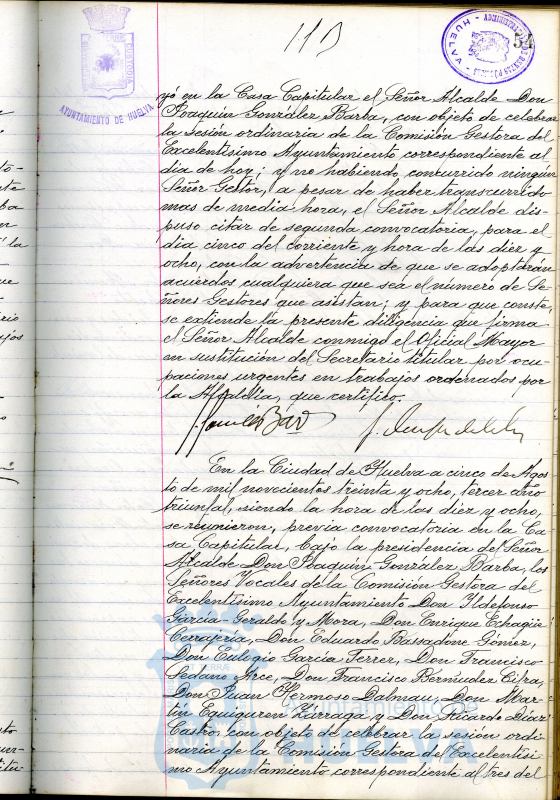 113
AYUNTAMIENTO DE HUELVA
HUELVA
yó en la Casa Capitular el Señor Alcalde Don
Joaquín González Barba, con objeto de celebrar
la sesión ordinaria de la Comisión Gestora del
Excelentísimo Ayuntamiento correspondiente al
día de hoy; y no habiendo concurrido ningún
Señor Gestor, a pesar de haber transcurrido
mas de media hora, el Señor Alcalde dis-
puso citar de segunda convocatoria, para el
día cinco del corriente y hora de las diez y
ocho, con la advertencia de que se adoptarán
acuerdos cualquiera que sea el número de Se-
ñores Gestores que asistan; y para que conste,
se extiende la presente diligencia que firma
el Señor Alcalde conmigo el Oficial Mayor
en sustitución del Secretario titular por ocu-
paciones urgentes en trabajos ordenados por
la Alcaldía, que certifico.
En la Ciudad de Huelva a cinco de Agos-
to de mil novecientos treinta y ocho, tercer año
triunfal, siendo la hora de las diez y ocho,
se reunieron, previa convocatoria en la Ca-
sa Capitular, bajo la presidencia del Señor
Alcalde Don Joaquín González Barba, los
Señores Vocales de la Comisión Gestora del
Excelentísimo Ayuntamiento Don Ildefonso
García-Geraldo y Mora, Don Enrique Echagüe
Cerrajería, Don Eduardo Bassadone Gómez,
Don Eulogio García Ferrer, Don Francisco
Sedano Arce, Don Francisco Bermúdez Cifra,
Don Juan Hermoso Dalmau, Don Mar-
tín Eguiguren Zurraga y Don Ricardo Díaz
Castro, con objeto de celebrar la sesión ordi-
naria de la Comisión Gestora del Excelentísi-
mo Ayuntamiento correspondiente al tres del